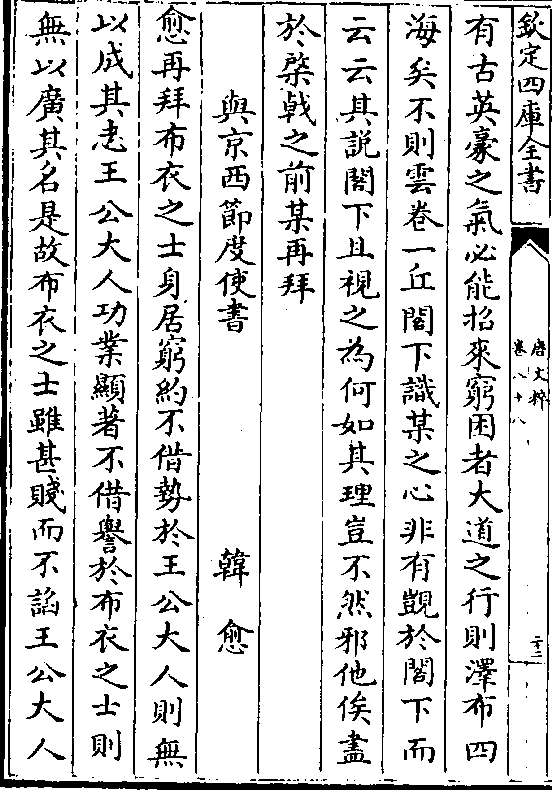 欽定四庫全書
唐文粹
卷八十八
二十二
有古英豪之氣必能招來窮困者大道之行則澤布四
海矣不則雲卷一丘閤下識某之心非有覬於閤下而
云云其説閤下且視之為何如其理豈不然邪他俟盡
於棨戟之前某再拜
與京西節度使書　韓愈
愈再拜布衣之士身居窮約不借勢於王公大人則無
以成其志王公大人功業顯著不借譽於布衣之士則
無以廣其名是故布衣之士雖甚賤而不諂王公大人